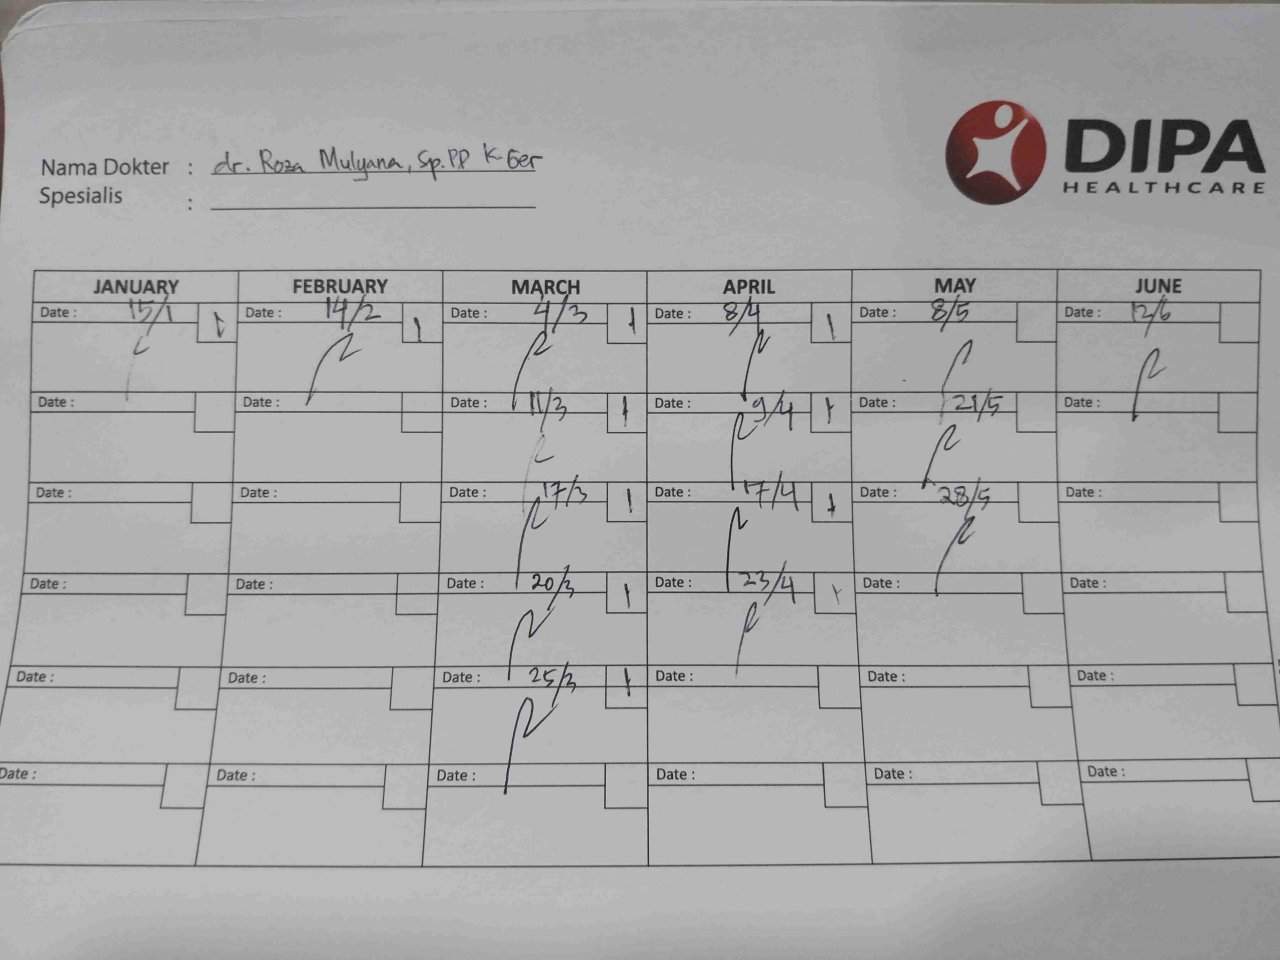 DIPA
HEALTHCARE
Nama Dokter : dr. Roza Mulyana, Sp.PD K-Ger
Spesialis :
JANUARY FEBRUARY MARCH APRIL MAY JUNE
Date : 15/1 1 Date : 14/2 1 Date : 4/3 1 Date : 8/4 1 Date : 8/5 Date : 12/6
Date : Date : Date : 11/3 1 Date : 9/4 1 Date : 21/5 Date :
Date : Date : Date : 17/3 1 Date : 17/4 1 Date : 28/5 Date :
Date : Date : Date : 20/3 1 Date : 23/4 1 Date : Date :
Date : Date : Date : 25/3 1 Date : Date : Date :
Date : Date : Date : Date : Date : Date :